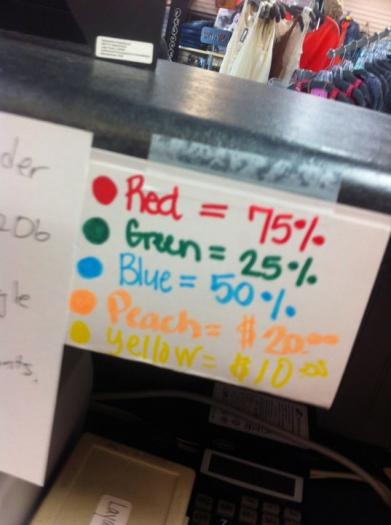 der
206
gle
nts.
Red = 75%
Green = 25%
Blue = 50%
Peach = $20.00
Yellow = $10.00
Laya